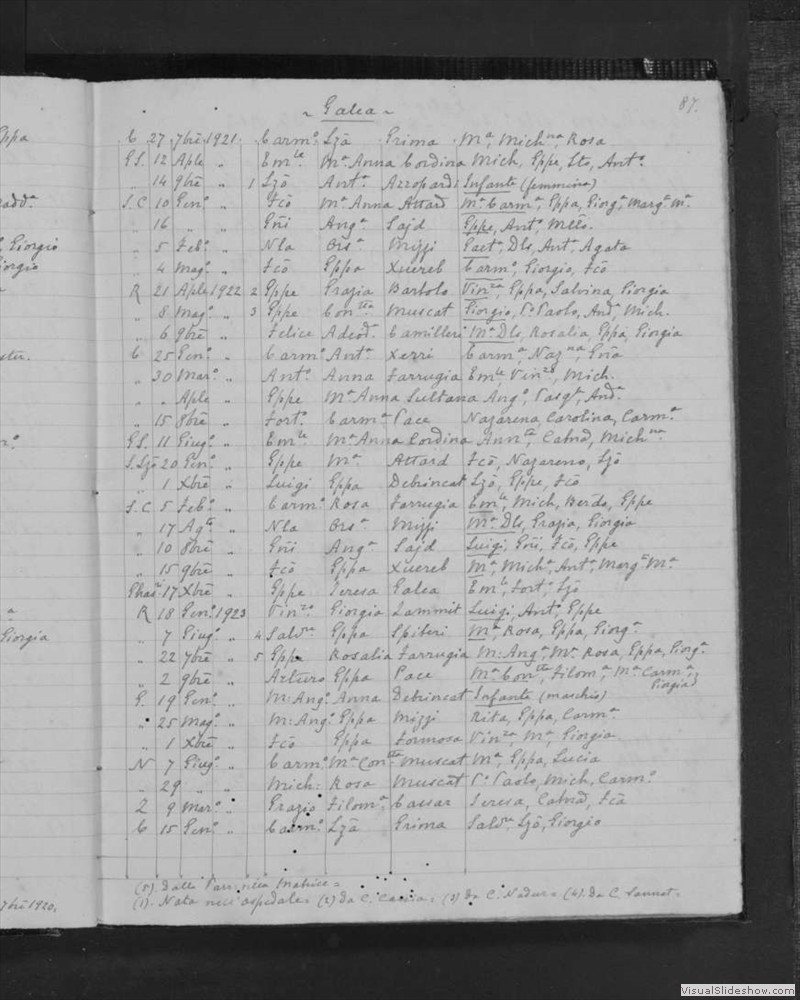 87.
~ Galea ~
C 27 7bre 1921 Carmo. Lzâ Grima Ma, Michna, Rosa
G.S. 12 Aple " Emle. Ma Anna Cordina Mich, Gppe, Lto, Anto.
" 14 9bre " 1 Lzô Anta. Azzopardi Infante (femmina)
S.C 10 Geno. " Fcô Ma Anna Attard Ma Carma, Gppa, Giorga, Marga Ma.
" 16 " " Gñi Anga. Sajd Gppe, Anto.
" 5 Febo. " Nla Orsa. Mizzi Gaeto, Dls, Anto. Agata
" 4 Mago. " Fcô Gppa Xuereb Carmo, Giorgio, Fcô
R 21 Aple 1922 2 Gppe Grazia Bartolo Vinza, Gppa, Salvina, Giorgia
" 8 Mago. " 3 Gppe Contta Muscat Giorgio, Po Paolo, Anda, Mich.
" 6 9bre " Felice Adeod. Camilleri Ma. Dls, Rosalia, Gppa, Giorgia
C 25 Geno. " Carmo. Anta. Xerri Carma, Nazna, Gñia
" 30 Maro. " Anto. Anna Farrugia Emle, Vinzo, Mich.
" " Aple " Gppe Ma Anna Sultana Ango, Pasqa, Anda.
" 15 8bre " Forto. Carma Pace Nazarena, Carolina, Carmo.
G.S. 11 Giugo. " Emle. Ma Anna Cordina Annta, Catnâ, Michna.
S.Lzô 20 Geno. " Gppe Ma. Attard Fcô, Nazareno, Lzô
" 1 Xbre " Luigi Gppa Debrincat Lzô, Gppe, Fcô
S.C 5 Febo. " Carmo. Rosa Farrugia Emle, Mich, Berdo, Gppe
" 17 Agto " Nla Orsa Mizzi Ma. Dls, Grazia, Giorgia
" 10 8bre " Gñi Anga Sajd Luigi, Gñi, Fcô, Gppe
" 15 9bre " Fcô Gppa Xuereb Ma, Micha, Anta, Marga Ma
17 Xbre " Gppe Teresa Galea Emle, Forto. Lzô
R 18 Geno. 1923 Vinzo Giorgia Zammit Luigi, Anto. Gppe
" 7 Giugo. " 4 Salvre Gppa Spiteri Ma, Rosa, Gppa, Giorga
" 22 7bre " 5 Gppe Rosalia Farrugia M: Anga, Ma Rosa, Gppa, Giorga.
" 2 9bre " Arturo Gppa Pace Ma Contta, Filoma, Ma Carma, Giorgia
G. 19 Geno. " M: Ango. Anna Debrincat Infante (maschio)
" 25 Mago. " M: Ango. Gppa Mizzi Rita, Gppa, Carma
" 1 Xbre " Fcô Gppa Formosa Vinza, Ma, Giorgia
N 7 Giugo. " Carmo. Ma Contta Muscat Ma, Gppa, Lucia
" 29 " " Mich: Rosa Muscat Po Paolo, Mich, Carmo.
Z 9 Maro. " Grazio Filoma Cassar Teresa, Catnâ, Fcâ
C 15 Geno. " Carmo. Lzâ Grima Salvre, Lzô, Giorgio
(5). dalla Parrocchia Matrice =
(1). Nata nell'ospedale = (2) da C. Caccia = (3) da C. Nadur = (4). da C. Sannat =
Gppa
Giorgio
Giorgio
Giorgia
7bre 1920.
VisualSlideshow.com